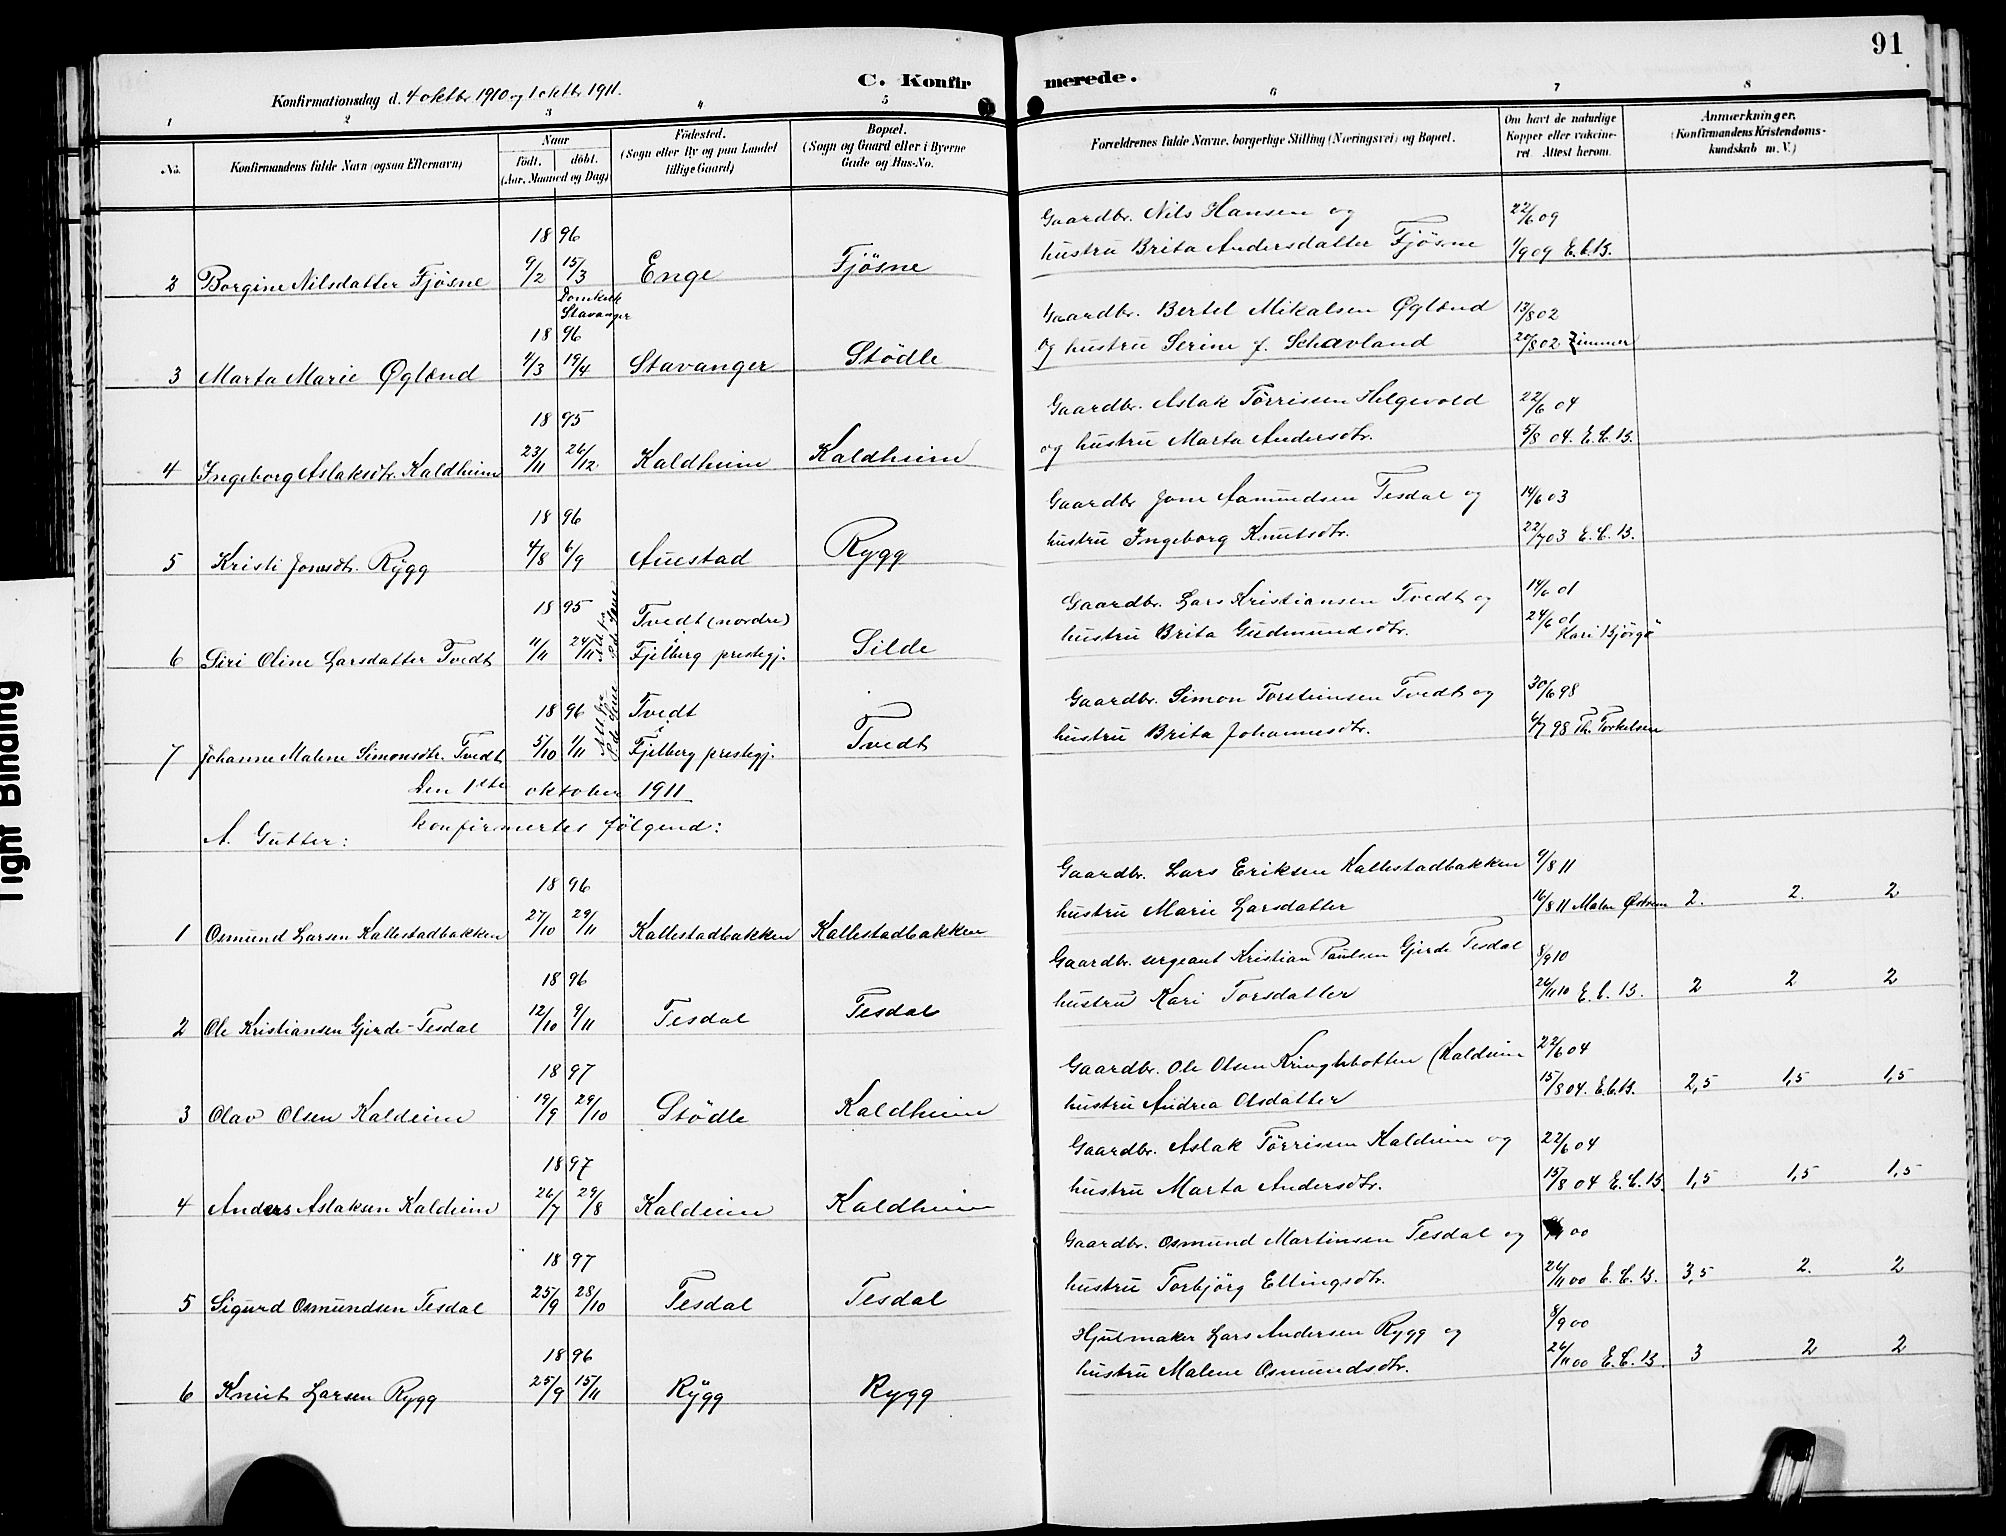 91
C. Konfirmerede.
Konfirmationsdag d. 4 oktbr. 1910 og 1 oktbr. 1911.
1 2 3 4 5 6 7 8
No. Konfirmandens fulde Navn (ogsaa Efternavn) Naar født. døbt. (Aar, Maaned og Dag) Fødested. (Sogn eller By og paa Landet tillige Gaard) Bopæl. (Sogn og Gaard eller i Byerne Gade og Hus-No. Forældrenes fulde Navne, borgerlige Stilling (Næringsvei) og Bopæl. Om havt de naturlige Kopper eller vakcineret. Attest herom. Anmærkninger. (Konfirmandens Kristendomskundskab m. V.)
Gaardbr. Nils Hansen og 22/6 09
18 96
2 Borgine Nilsdatter Fjøsne 9/2 15/3 Enge Fjøsne hustru Brita Andersdatter Fjøsne 1/9 09 E.C.B.
Domkirk Stavanger
Gaardbr. Bertel Mikalsen Øglænd 13/8 02
18 96
3 Marta Marie Øglænd 4/3 19/4 Stavanger Stødle og hustru Serine f. Schævland 20/8 02 Zimmer
Gaardbr. Aslak Tørrisen Helgevold 22/6 04
18 95
4 Ingeborg Aslaksdtr. Kaldheim 23/11 26/12 Kaldheim Kaldheim og hustru Marta Andersdtr. 5/8 04. E.C.B.
Gaardbr Jone Aamundsen Tesdal og 14/6 03
18 96
5 Kristi Jonsdtr. Rygg 4/8 6/9 Auestad Rygg hustru Ingeborg Knutsdtr. 22/7 03 E.C.B.
Gaardbr. Lars Kristiansen Tvedt og 14/6 01
18 95 Tvedt (nordre)
6 Siri Oline Larsdatter Tvedt 11/11 24/11 Fjelberg prestegj. Silde hustru Brita Gudmundsdtr. 24/6 01 Kari Bjørgo
Gaardbr. Simon Torsteinsen Tvedt og 30/6 98
18 96 Tvedt
7 Johanne Malene Simonsdtr. Tvedt 5/10 1/11 i Fjelberg prestegj. Tvedt hustru Brita Johannesdtr. 6/7 98 Th. Torkelsen
Den 1ste oktober 1911
A. Gutter: konfirmertes følgend:
Gaardbr. Lars Eriksen Kallestadbakken 9/8 11
18 96
1 Osmund Larsen Kallestadbakken 27/10 29/11 Kallestadbakken Kallestadbakken hustru Marie Larsdatter 16/8 11 2. 2. 2
Gaardbr. sergeant Kristian Paulsen Gjerde Tesdal 8/9 10
18 96
2 Ole Kristiansen Gjerde-Tesdal 12/10 9/11 Tesdal Tesdal hustru Kari Torsdatter 26/11 10 E.C.B. 2 2 2
Gaardbr. Ole Olsen Kringlebotten (Kaldeim 22/6 04
18 97
3 Olav Olsen Kaldeim 19/9 29/10 Stødle Kaldheim hustru Andrea Olsdatter 15/8 04. E.C.B. 2,5 1,5 1,5
Gaardbr. Aslak Tørrisen Kaldeim og 22/6 04
18 97
4 Anders Aslaksen Kaldeim 26/7 29/8 Kaldeim Kaldheim hustru Marta Andersdtr. 15/8 04 E.C.B. 1,5 1,5 1,5
Gaardbr. Osmund Martinsen Tesdal og 00
18 97
5 Sigurd Osmundsen Tesdal 25/9 28/10 Tesdal Tesdal hustru Torbjørg Ellingsdtr. 26/11 00 E.C.B. 3,5 2. 2
Hjulmaker Lars Andersen Rygg og 8/9 00
18 96
6 Knut Larsen Rygg 25/9 15/11 Rygg Rygg hustru Malene Osmundsdtr. 26/11 00 E.C.B. 3 2 2
Tight Binding